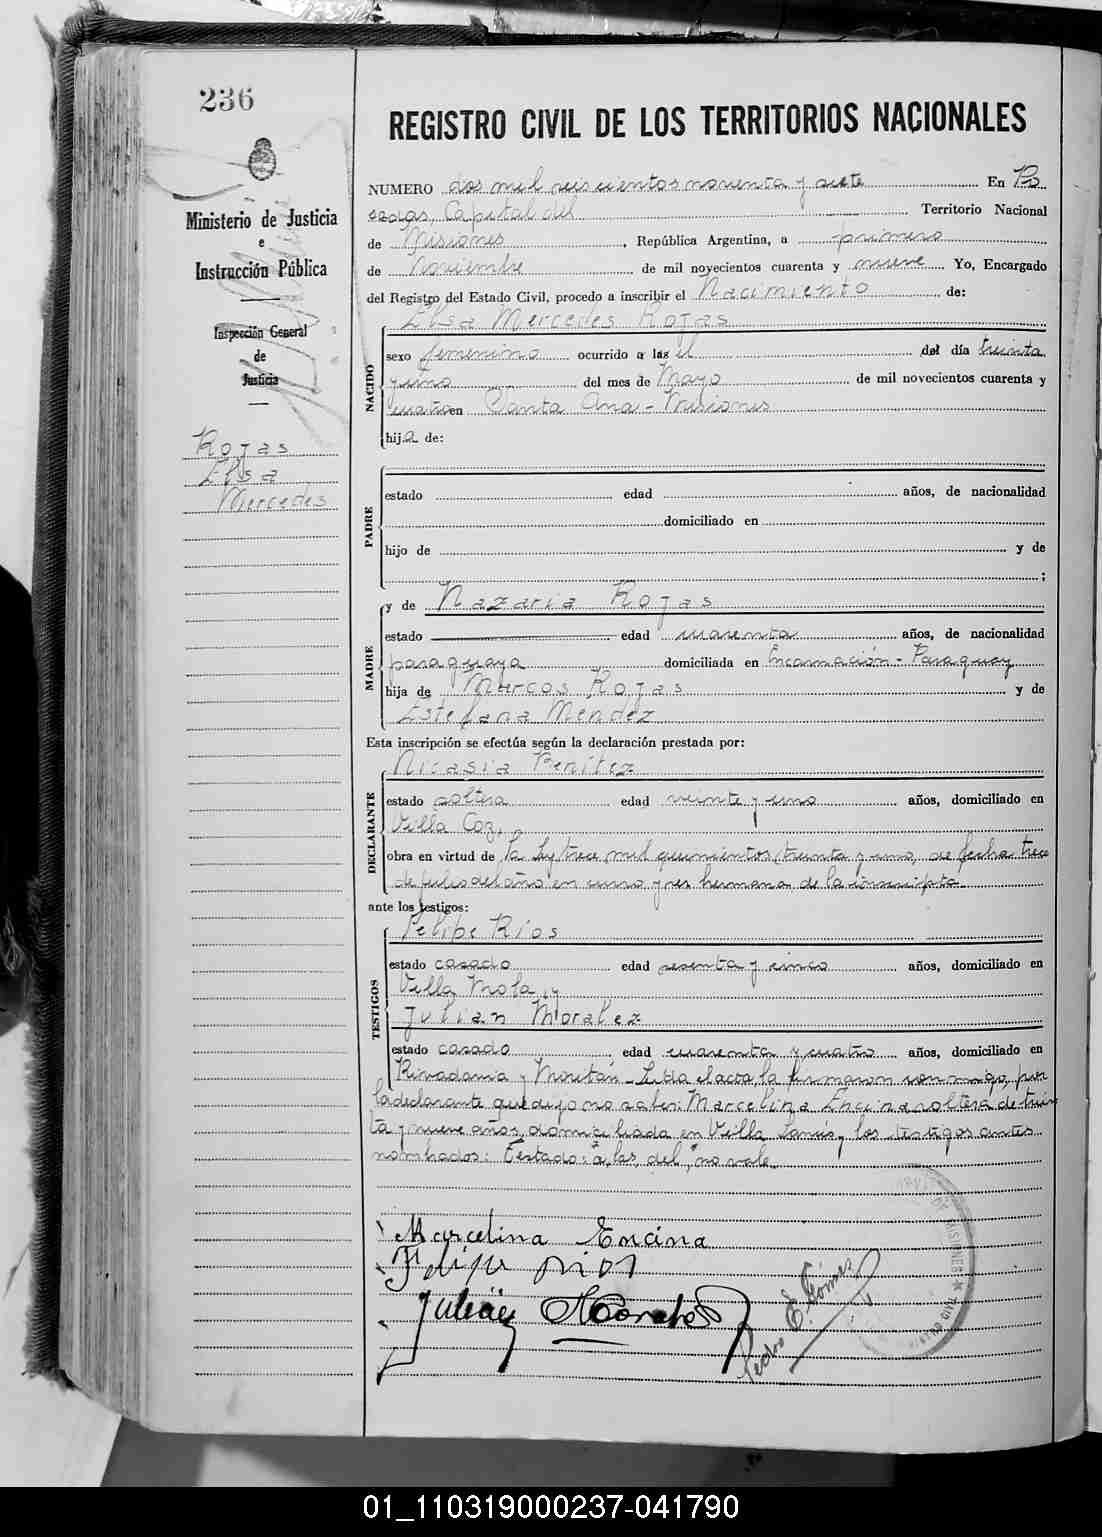 236
REGISTRO CIVIL DE LOS TERRITORIOS NACIONALES
Ministerio de Justicia
e
Instrucción Pública
Inspección General
de
Justicia
Rojas
Elsa
Mercedes
NUMERO dos mil seiscientos noventa y siete En Po
sadas, Capital del Territorio Nacional
de Misiones, República Argentina, a primero
de Noviembre de mil novecientos cuarenta y nueve Yo, Encargado
del Registro del Estado Civil, procedo a inscribir el Nacimiento de:
Elsa Mercedes Rojas
NACIDO
sexo femenino ocurrido a las el del día treinta
y uno del mes de Mayo de mil novecientos cuarenta y
cuatro en Santa Ana - Misiones
hija de:
PADRE
estado edad años, de nacionalidad
domiciliado en
hijo de y de
;
MADRE
y de Nazaria Rojas
estado edad cuarenta años, de nacionalidad
paraguaya domiciliada en Encarnación - Paraguay
hija de Marcos Rojas y de
Estefana Méndez
Esta inscripción se efectúa según la declaración prestada por:
DECLARANTE
Nicasia Benítez
estado soltera edad veinte y uno años, domiciliado en
Villa Coz,
obra en virtud de la Ley trece mil quinientos treinta y uno, de fecha trece
de julio del año en curso y es hermana de la inscripta
ante los testigos:
TESTIGOS
Felipe Ríos
estado casado edad sesenta y cinco años, domiciliado en
Villa Mola, y
Julian Moralez
estado casado edad cuarenta y cuatro años, domiciliado en
Rivadavia y Moritán - Leída el acta, la firmaron conmigo, por
la declarante que dijo no saber: Marcelina Encina soltera de trein
ta y nueve años, domiciliada en Villa y los testigos antes
nombrados: Testado: "a las, del," no vale.
Marcelina Encina
Felipe rios
Julián Morales
Pedro E. Gómez
DE MISIONES
01_110319000237-041790